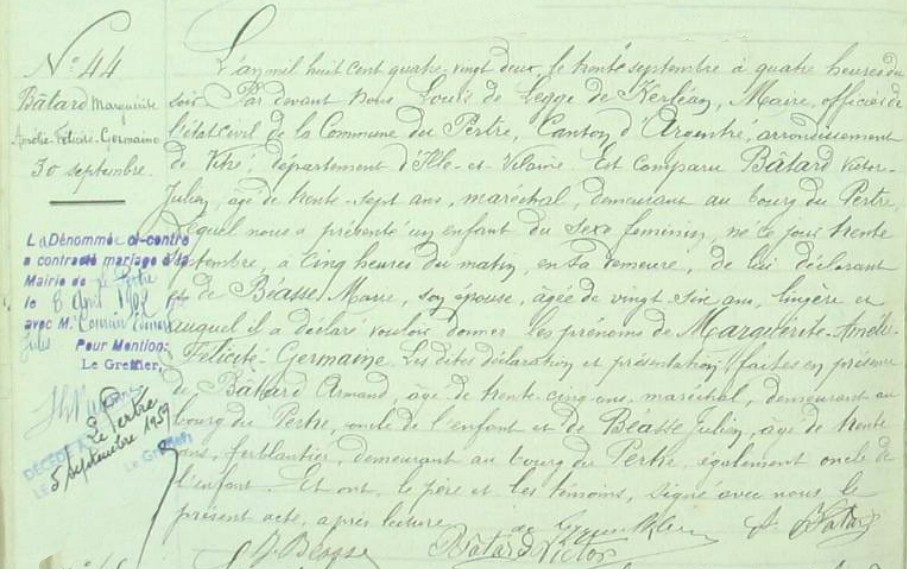 N° 44
Bâtard Marguerite
Amélie-Félicité-Germaine
30 septembre.
La Dénommée ci-contre
a contracté mariage à la
Mairie de le Pertre
le 8 Avril 1902
avec M.
Jules
Pour Mention:
Le Greffier,
DÉCÉDÉ A Le Pertre
LE 5 septembre 1959
Le Greffier
L'an mil huit cent quatre-vingt deux, le trente septembre à quatre heures du
soir Par devant Nous Louis de Legge de Kerléan, Maire, officier de
l'état civil de la Commune du Pertre, Canton d'Argentré, arrondissement
de Vitré, département d'Ille-et-Vilaine Est Comparu Bâtard Victor-
Julien, âgé de trente-sept ans, maréchal, demeurant au bourg du Pertre,
lequel nous a présenté un enfant du sexe féminin, né ce jour trente
septembre, à cinq heures du matin, en sa demeure, de lui déclarant
et de Béasse Marie, son épouse, âgée de vingt six ans, lingère et
auquel il a déclaré vouloir donner les prénoms de Marguerite-Amélie-
Félicité-Germaine. Les dites déclaration et présentation faites en présence
de Bâtard Armand, âgé de trente-cinq ans, maréchal, demeurant au
bourg du Pertre, oncle de l'enfant et de Béasse Julien, âgé de trente
ans, ferblantier, demeurant au bourg du Pertre, également oncle de
l'enfant. Et ont, le père et les témoins, signé avec nous le
présent acte, après lecture.
de A. Batard
J. Béasse Bâtard Victor